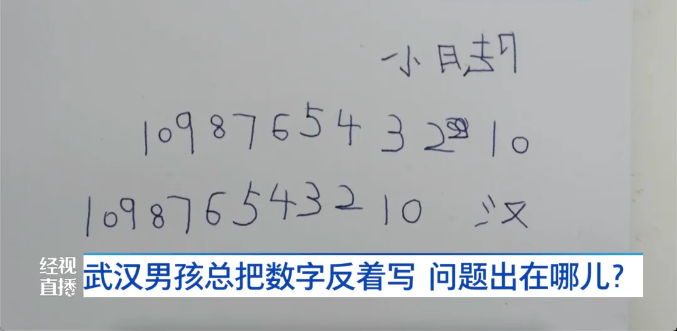 小
10 9 8 7 6 5 4 3 2 1 0
10 9 8 7 6 5 4 3 2 1 0 汉
经视直播
武汉男孩总把数字反着写 问题出在哪儿?